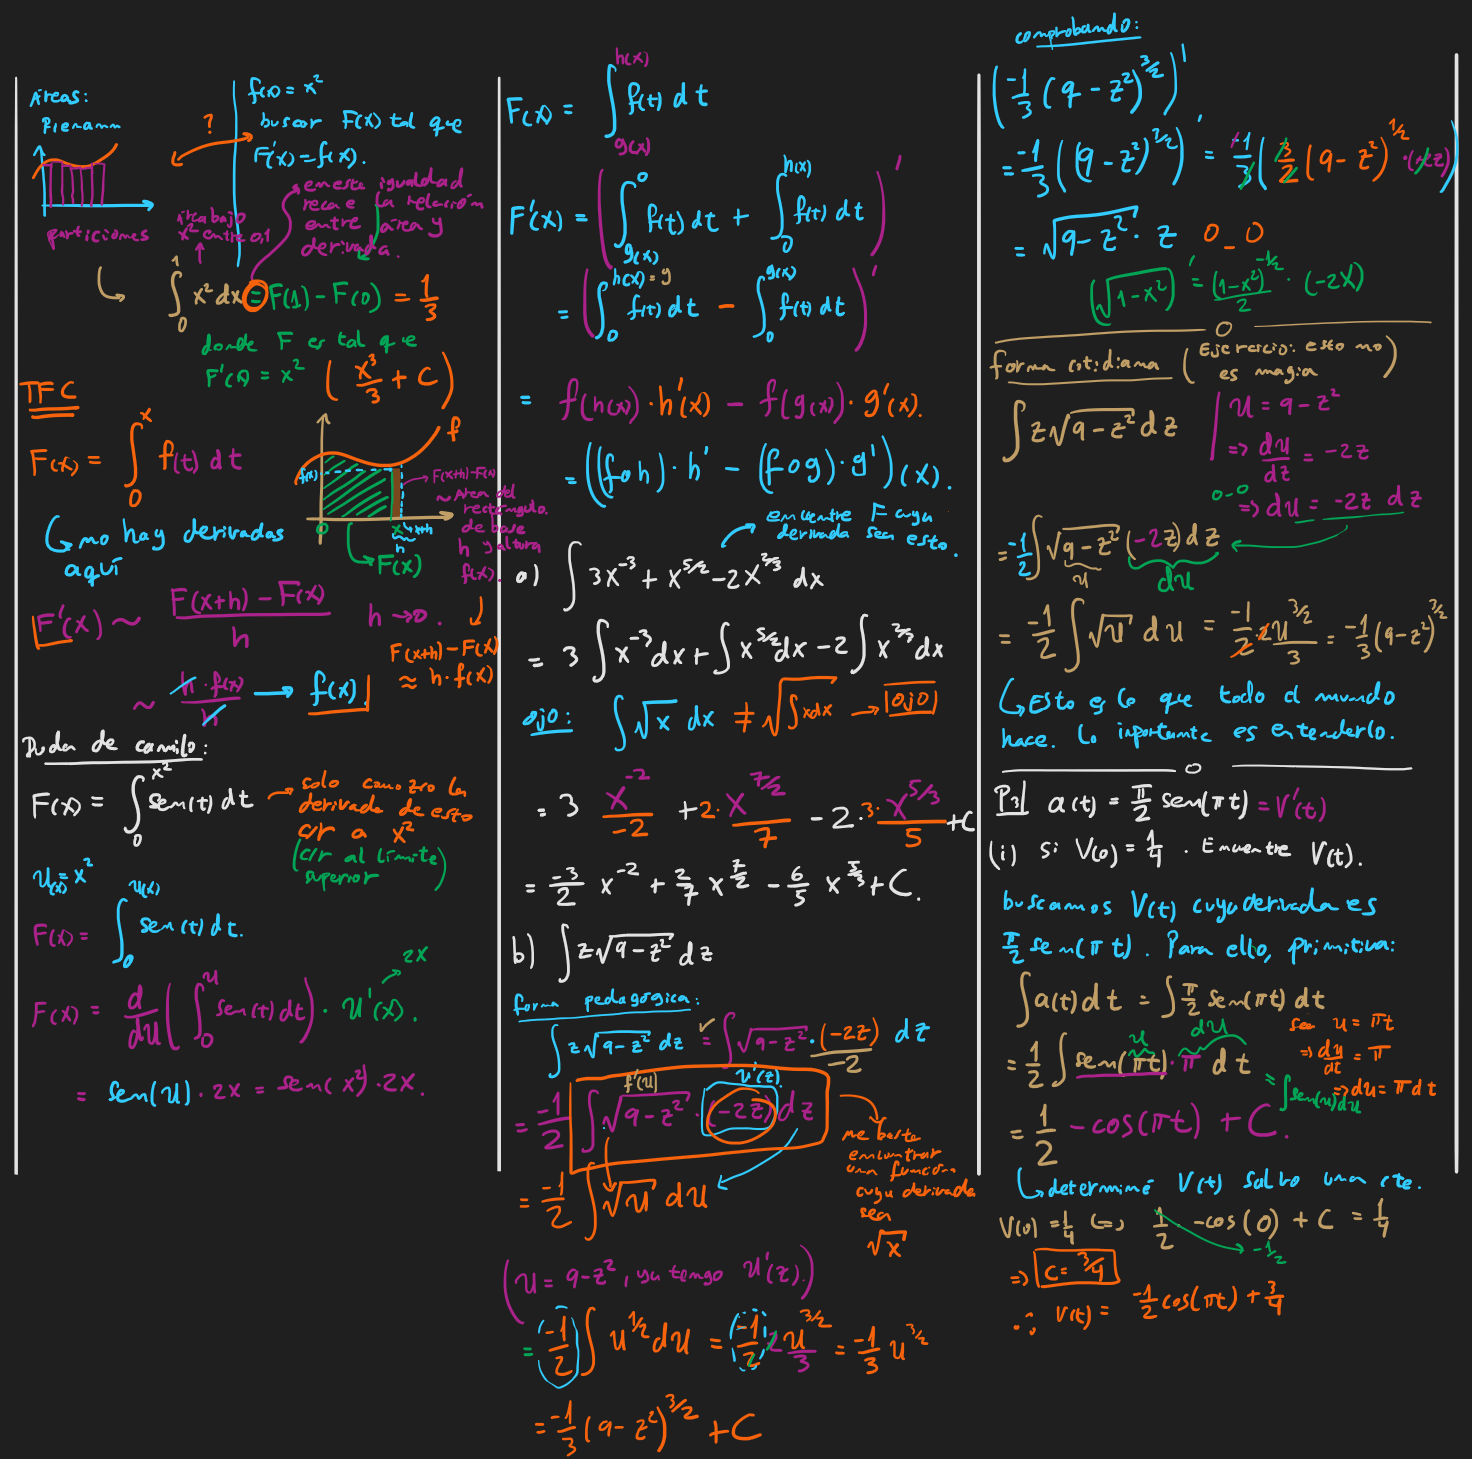 Áreas:
Riemann
particiones
?
f(x) = x²
buscar F(x) tal que
F'(x) = f(x).
en esta igualdad
recae la relación
entre área y
derivada.
área bajo
x² entre 0,1
∫₀¹ x² dx = F(1) - F(0) = 1/3
donde F es tal que
F'(x) = x² (x³/3 + C)
TFC
F(x) = ∫₀ˣ f(t) dt
f
f(x)
0 x x+h
h
F(x)
F(x+h) - F(x)
~ Área del
rectángulo.
de base
h y altura
f(x).
no hay derivadas
aquí
F'(x) ~ (F(x+h) - F(x))/h h → 0.
F(x+h) - F(x)
≈ h · f(x)
~ h · f(x)/h → f(x)
Duda de camilo:
F(x) = ∫₀^x² sen(t) dt
solo conozco la
derivada de esto
c/r a x²
(c/r al límite
superior)
u(x) = x²
F(x) = ∫₀^u(x) sen(t) dt.
F(x) = d/du (∫₀^u sen(t) dt) · u'(x). 2x
= sen(u) · 2x = sen(x²) · 2x.
F(x) = ∫_g(x)^h(x) f(t) dt
F'(x) = (∫_g(x)^0 f(t) dt + ∫_0^h(x) f(t) dt)'
= (∫_0^h(x) = g f(t) dt - ∫_0^g(x) f(t) dt)'
= f(h(x)) · h'(x) - f(g(x)) · g'(x).
= ((f o h) · h' - (f o g) · g')(x).
encuentre F cuya
derivada sea esto.
a) ∫ 3x⁻³ + x^5/2 - 2x^2/3 dx
= 3 ∫ x⁻³ dx + ∫ x^5/2 dx - 2 ∫ x^2/3 dx
ojo: ∫ √x dx ≠ √∫xdx → ¡ojo!
= 3 x⁻²/-2 + 2 · x^7/2/7 - 2 · 3 · x^5/3/5 + C
= -3/2 x⁻² + 2/7 x^7/2 - 6/5 x^5/3 + C.
b) ∫ z√(9 - z²) dz
forma pedagógica:
∫ z√(9 - z²) dz = ∫ √(9 - z²) · (-2z)/-2 dz ✓
f'(u) u'(z)
= -1/2 ∫ √(9 - z²) · (-2z) dz
me basta
encontrar
una función
cuya derivada
sea
√x
= -1/2 ∫ √u du
(u = 9 - z², ya tengo u'(z).)
= -1/2 ∫ u^1/2 du = -1/2 2u^3/2/3 = -1/3 u^3/2
= -1/3 (9 - z²)^3/2 + C
comprobando:
(-1/3 (9 - z²)^3/2)'
= -1/3 ((9 - z²)^3/2)' = -1/3 (3/2 (9 - z²)^1/2 · (-2z))
= √(9 - z²) · z 0_0
(√(1 - x²))' = (1 - x²)^-1/2/2 · (-2x)
0
forma cotidiana (Ejercicio: esto no
es magia)
∫ z√(9 - z²) dz
u = 9 - z²
=> du/dz = -2z
0-0
=> du = -2z dz
= -1/2 ∫ √(9 - z²) (-2z) dz
u du
= -1/2 ∫ √u du = -1/2 · 2u^3/2/3 = -1/3 (9 - z²)^3/2
Esto es lo que todo el mundo
hace. Lo importante es entenderlo.
0
P3| a(t) = π/2 sen(πt) = V'(t)
(i) Si V(0) = 1/4 . Encuentre V(t).
buscamos V(t) cuya derivada es
π/2 sen(πt). Para ello, primitiva:
∫ a(t) dt = ∫ π/2 sen(πt) dt
sea u = πt
=> du/dt = π
=> du = π dt
u du
= 1/2 ∫ sen(πt) · π dt = ∫ sen(u) du
= 1/2 -cos(πt) + C.
determiné V(t) salvo una cte.
V(0) = 1/4 <=> 1/2 -cos(0) + C = 1/4
-1/2
=> C = 3/4
∴ V(t) = -1/2 cos(πt) + 3/4